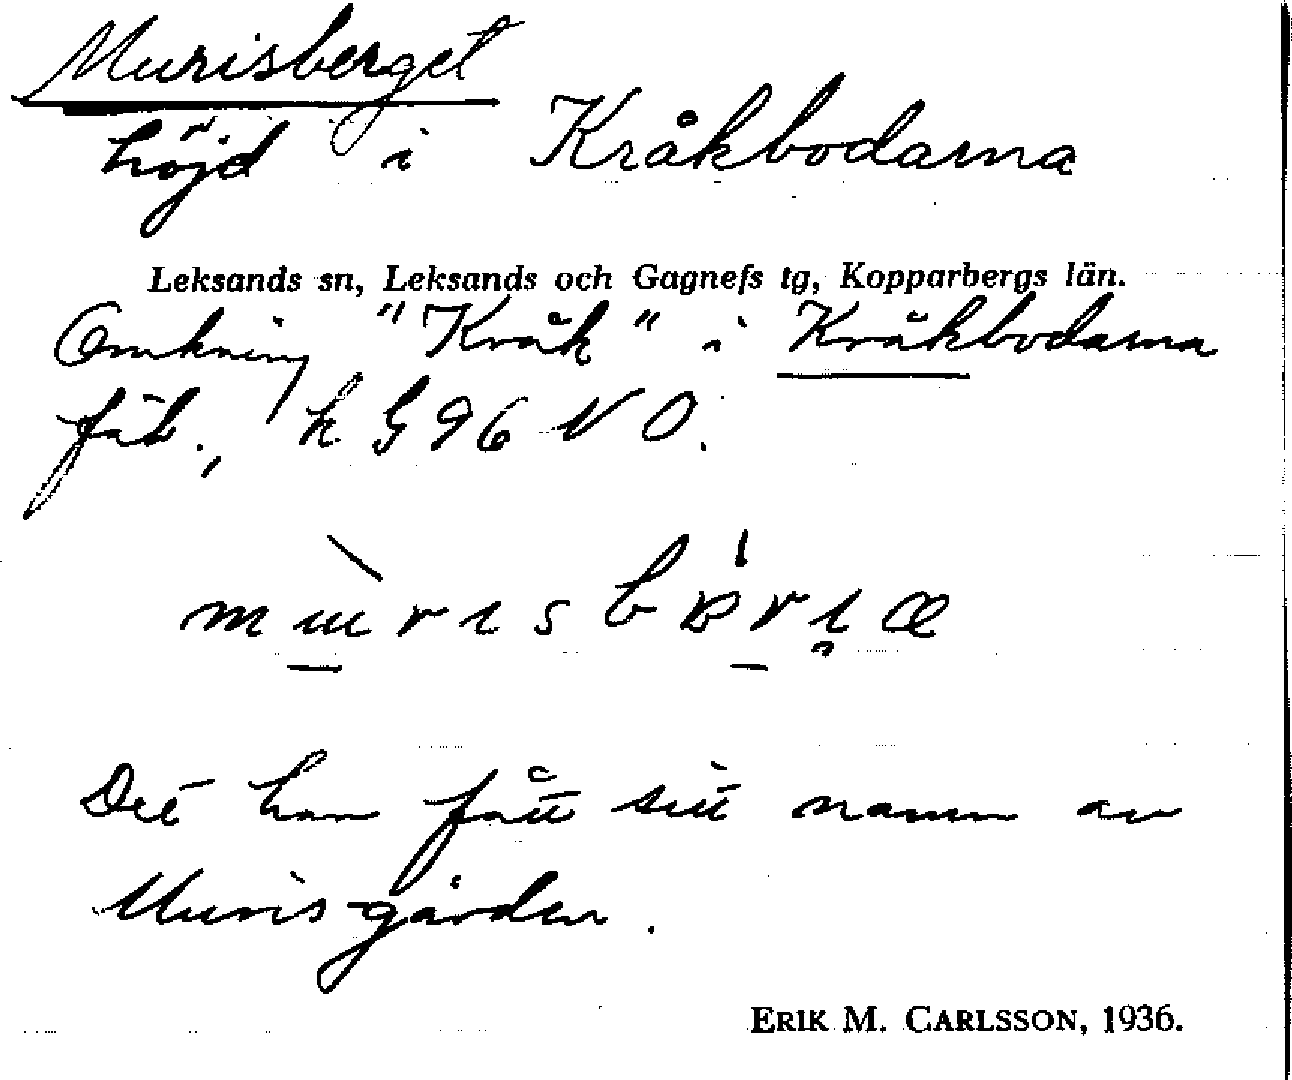 Murisberget
höjd i Kråkbodarna
Leksands sn, Leksands och Gagnefs tg, Kopparbergs län.
Omkring "Kråk" i Kråkbodarna
fäb., k G 96 N O.
Det har fått sitt namn av
Murisgården.
ERIK M. CARLSSON, 1936.